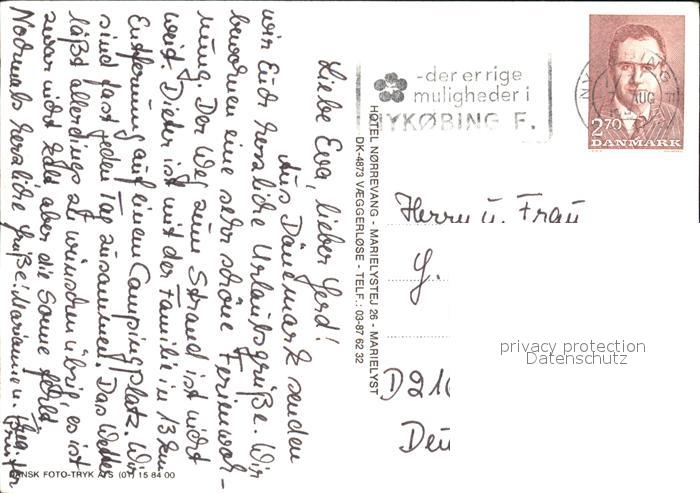 Liebe Eva, lieber Gerd!
Aus Dänemark senden
wir Euch herzliche Urlaubsgrüße. Wir
bewohnen eine sehr schöne Ferienwoh-
nung. Der Weg zum Strand ist nicht
weit. Dieter ist mit der Familie in 13 km
Entfernung auf einem Campingplatz. Wir
sind fast jeden Tag zusammen. Das Wetter
läßt allerdings zu wünschen übrig, es ist
zwar nicht kalt aber die Sonne fehlt
Nochmals herzliche Grüße! Marianne u.
DANSK FOTO-TRYK A/S (01) 15 84 00
HOTEL NØRREVANG - MARIELYSTEJ 26 - MARIELYST
DK-4873 VÆGGERLØSE - TELF.: 03-87 62 32
-der er rige
muligheder i
NYKØBING F.
AUG
2.70
DANMARK
Herrn u. Frau
G.
D 21
Deu
privacy protection
Datenschutz